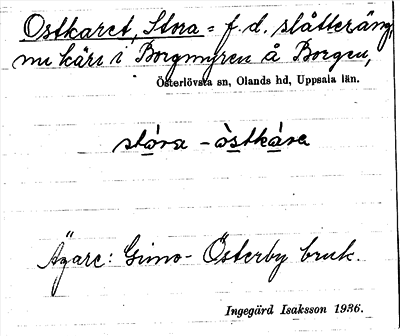 Ostkaret, Stora = f. d. slåtteräng,
nu kärr i Borgmyren å Borgen,
Österlövsta sn, Olands hd, Uppsala län.
stóra - òstkára
Ägare: Gimo-Österby bruk.
Ingegärd Isaksson 1936.